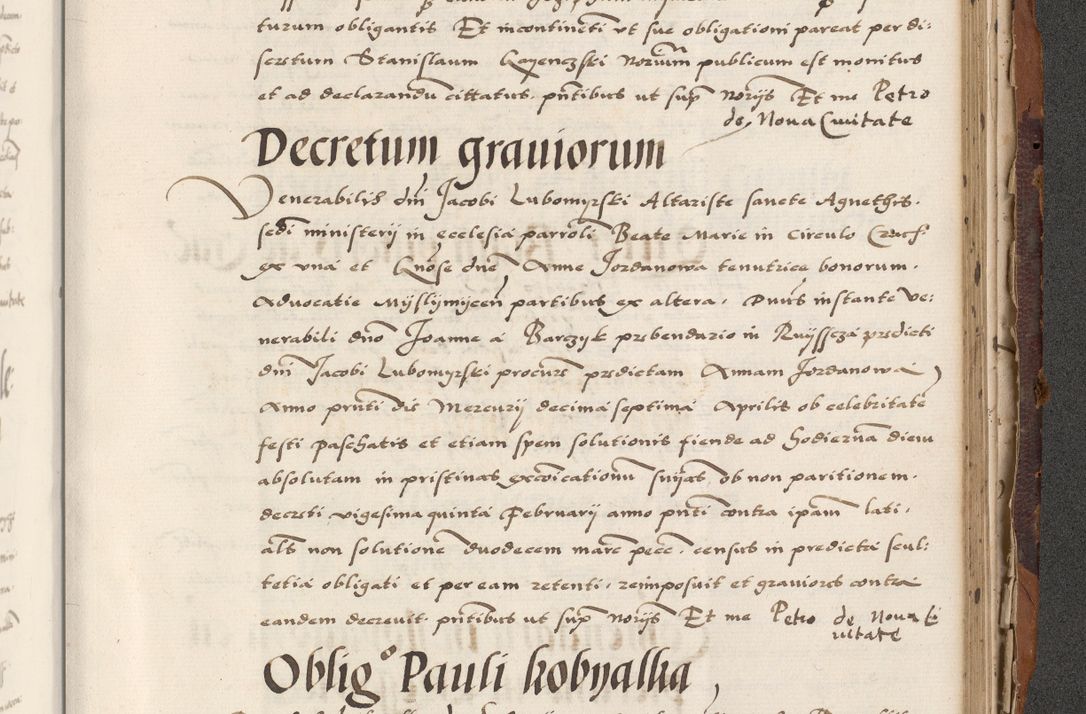 turum obligantis Et incontineti ut sue obligationi pareat per di:
scretum Stanislaum Notariũ publicum est monitus
et ad declarandũ cittatus, pñtibus ut supͣ norijs Et me Petro
de Nova Civitate
Decretum graviorum
Venerabilis dñi Jacobi Lubomyrski Altariste sancte Agnethis.
sedi ministerij in ecclesia parroli Beate Marie in Circulo Cracf
ex una et Gnose dne Anne Jordanowa tenutrice bonorum.
Advocatie Myslymycen partibus ex altera. Dnus instante Ve:
nerabili dno Joanne a Barczyk prebendario in Ruysscza predicti
dni Jacobi Lubomyrski procure predictam Annam Jordanowa
Anno pñti die Mercurij decima septima Aprilis ob celebritate
festi Paschatis et etiam spem solutionis fiende ad hodiernã diem
absolutam in pristinas excoicationũ suỹas, ob non paritionem.
decreti vigesima quinta Februarij anno pñti contra ipam lati.
als non solutione duodecem marc pecc. census in predicta scul:
tetia obligati et per eam retenti, reimposuit et graviores contra
eandem decrevit. pñtibus ut supͣ norijs Et me Petro de Nova Ci
vitate
Obligͦ Pauli kobyalka